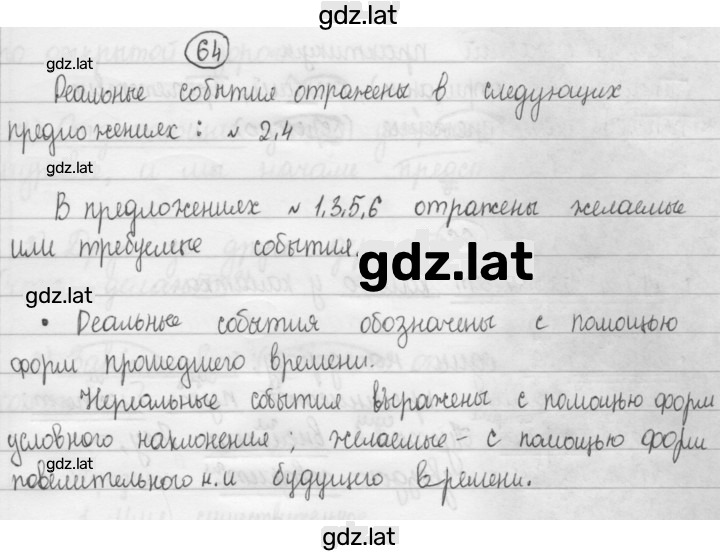 gdz.lat
64
gdz.lat
Реальные события отражены в следующих
предложениях: № 2,4
gdz.lat
В предложениях № 1,3,5,6 отражены желаемые
или требуемые события.
gdz.lat
gdz.lat
• Реальные события обозначены с помощью
форм прошедшего времени.
Нереальные события выражены с помощью форм
условного наклонения, желаемые - с помощью форм
gdz.lat
повелительного н. и будущего времени.
gdz.lat